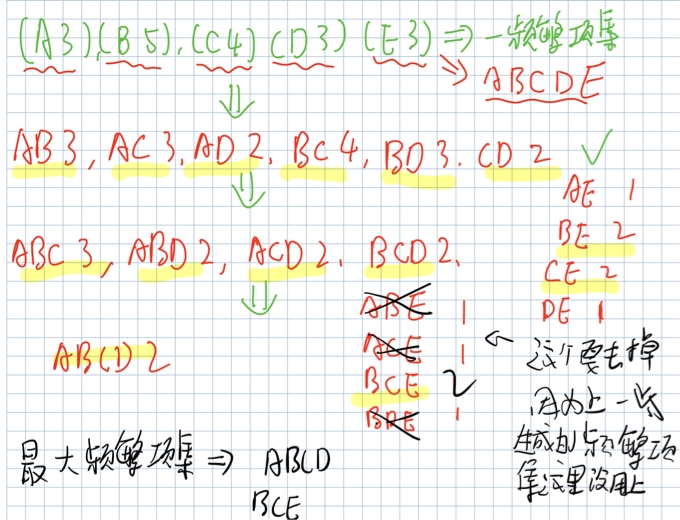 (A3),(B5),(C4)(D3)(E3)⇒一频繁项集
⇒ ABCDE
⇓
AB3, AC3, AD2, BC4, BD3. CD2 ✓
⇓
AE 1
BE 2
CE 2
DE 1
ABC3, ABD2, ACD2, BCD2,
⇓
ABE 1
ACE 1
BCE 2
BDE 1
← 这个要去掉
因为上一步
生成的频繁项
集这里没用上
ABCD2
最大频繁项集 ⇒ ABCD
BCE